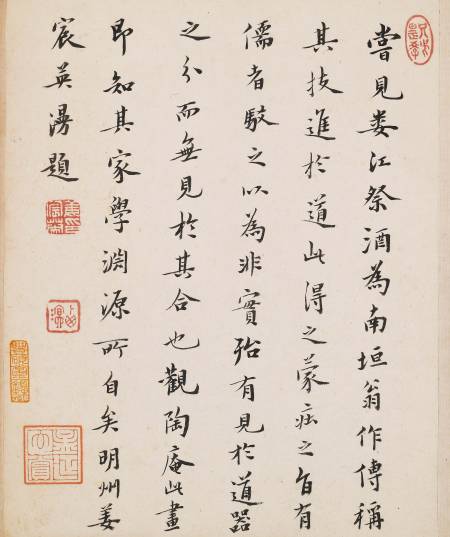 嘗見婁江祭酒為南垣翁作傳稱
其技進於道此得之蒙莊之旨有
儒者駁之以為非實殆有見於道器
之分而無見於其合也觀陶庵此畫
即知其家學淵源所自矣明州姜
宸英漫題